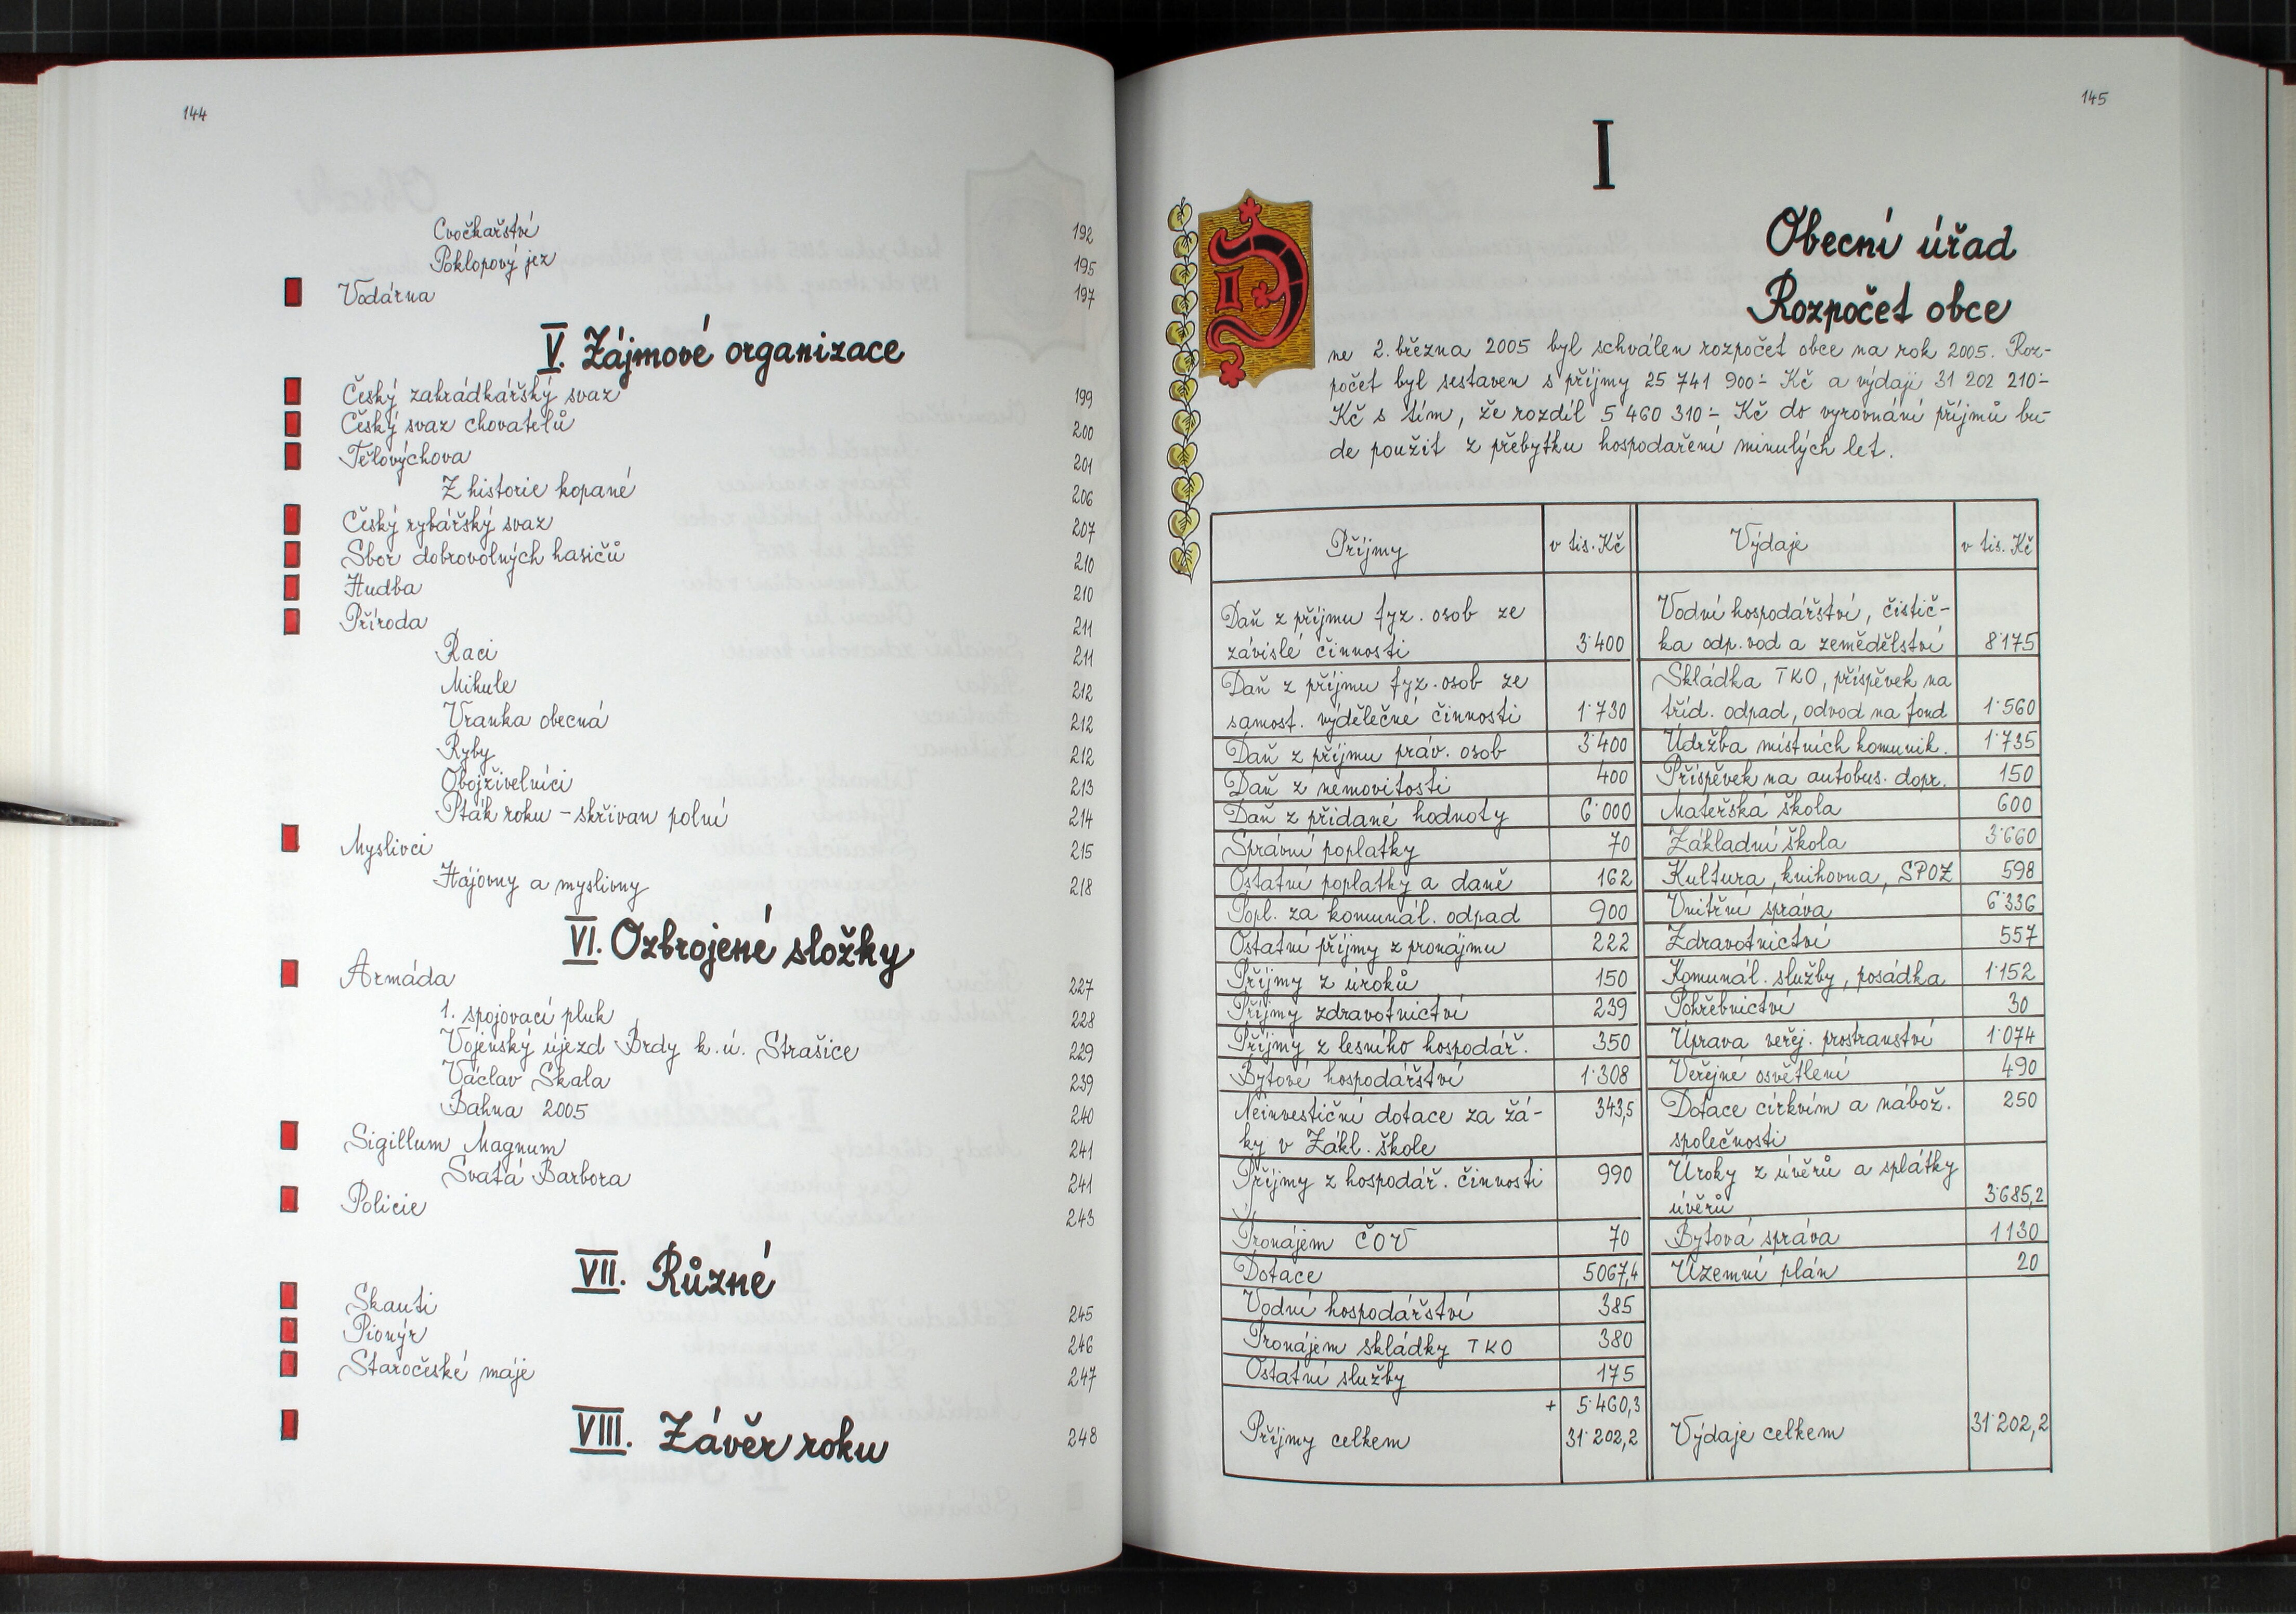 144
Cvočkařství 192
Poklopový jez 195
Vodárna 197
V. Zájmové organizace
Český zahrádkářský svaz 199
Český svaz chovatelů 200
Tělovýchova 201
Z historie kopané 206
Český rybářský svaz 207
Sbor dobrovolných hasičů 210
Hudba 210
Příroda 211
Raci 211
Mihule 212
Vranka obecná 212
Ryby 212
Obojživelníci 213
Pták roku - skřivan polní 214
Myslivci 215
Hájovny a myslivny 218
VI. Ozbrojené složky
Armáda 227
1. spojovací pluk 228
Vojenský újezd Brdy k.ú. Strašice 229
Václav Skala 239
Bahna 2005 240
Sigillum Magnum 241
Svatá Barbora 241
Policie 243
VII. Různé
Skauti 245
Pionýr 246
Staročeské máje 247
VIII. Závěr roku 248
145
I
Obecní úřad
Rozpočet obce
Dne 2. března 2005 byl schválen rozpočet obce na rok 2005. Roz-
počet byl sestaven s příjmy 25 741 900.- Kč a výdaji 31 202 210.-
Kč s tím, že rozdíl 5 460 310.- Kč do vyrovnání příjmů bu-
de použit z přebytku hospodaření minulých let.
Příjmy v tis. Kč Výdaje v tis. Kč
Daň z příjmu fyz. osob ze Vodní hospodářství, čistič-
závislé činnosti 3.400 ka odp. vod a zemědělství 8.175
Daň z příjmu fyz. osob ze Skládka TKO, příspěvek na
samost. výdělečné činnosti 1.730 tříd. odpad, odvod na fond 1.560
Daň z příjmu práv. osob 3.400 Údržba místních komunik. 1.735
Daň z nemovitosti 400 Příspěvek na autobus. dopr. 150
Daň z přidané hodnoty 6.000 Mateřská škola 600
Správní poplatky 70 Základní škola 3.660
Ostatní poplatky a daně 162 Kultura, knihovna, SPOZ 598
Popl. za komunál. odpad 900 Vnitřní správa 6.336
Ostatní příjmy z pronájmu 222 Zdravotnictví 557
Příjmy z úroků 150 Komunál. služby, posádka 1.152
Příjmy zdravotnictví 239 Pohřebnictví 30
Příjmy z lesního hospodář. 350 Úprava veřej. prostranství 1.074
Bytové hospodářství 1.308 Veřejné osvětlení 490
Neinvestiční dotace za žá- 343,5 Dotace církvím a nábož. 250
ky v Zákl. škole společnosti
Příjmy z hospodář. činnosti 990 Úroky z úvěrů a splátky
úvěrů 3.685,2
Pronájem ČOV 70 Bytová správa 1130
Dotace 5067,4 Územní plán 20
Vodní hospodářství 385
Pronájem skládky TKO 380
Ostatní služby 175
+ 5.460,3
Příjmy celkem 31.202,2 Výdaje celkem 31.202,2